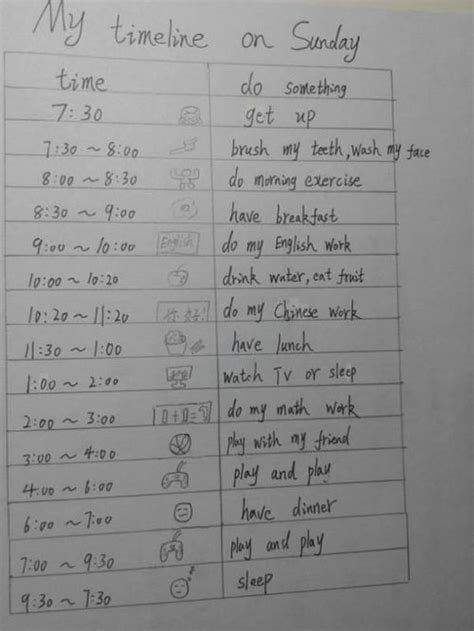 My timeline on Sunday
time do something
7:30 get up
7:30 ~ 8:00 brush my teeth, wash my face
8:00 ~ 8:30 do morning exercise
8:30 ~ 9:00 have breakfast
9:00 ~ 10:00 English do my English work
10:00 ~ 10:20 drink water, eat fruit
10:20 ~ 11:20 你好! do my Chinese work
11:30 ~ 1:00 have lunch
1:00 ~ 2:00 watch TV or sleep
2:00 ~ 3:00 do my math work
3:00 ~ 4:00 play with my friend
4:00 ~ 6:00 play and play
6:00 ~ 7:00 have dinner
7:00 ~ 9:30 play and play
9:30 ~ 7:30 sleep